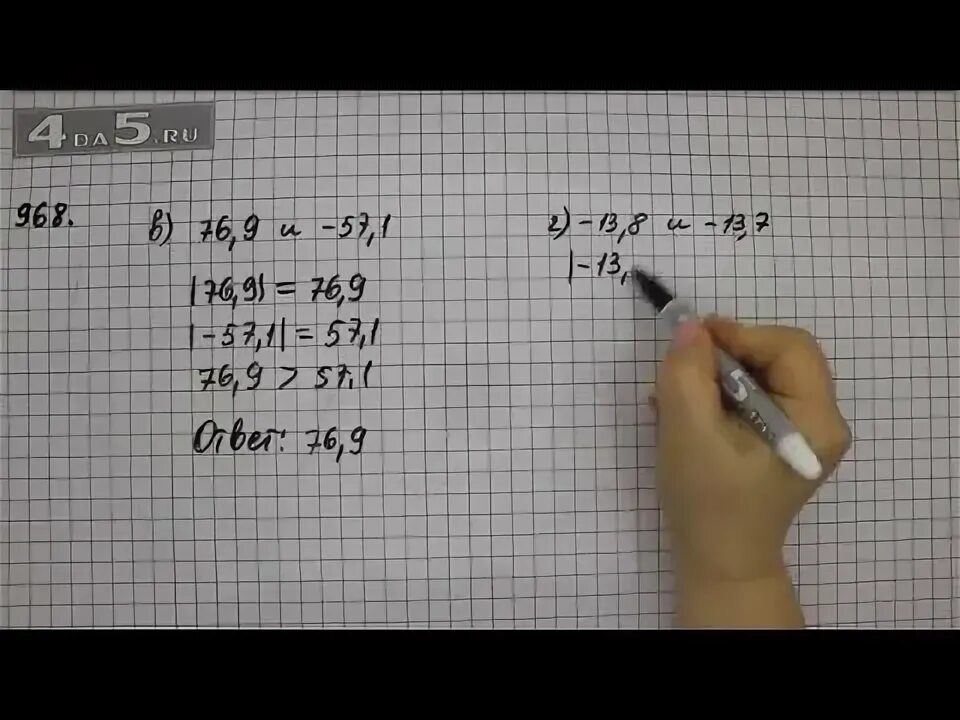 4DA5.RU
968.
в) 76,9 и -57,1
|76,9| = 76,9
|-57,1| = 57,1
76,9 > 57,1
Ответ: 76,9
г) -13,8 и -13,7
|-13,